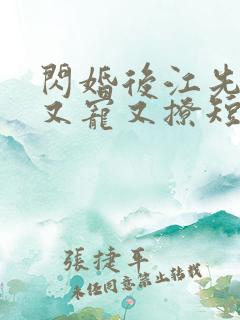 閃婚後江先
又寵又撩短
張捷平
未經同意禁止轉載